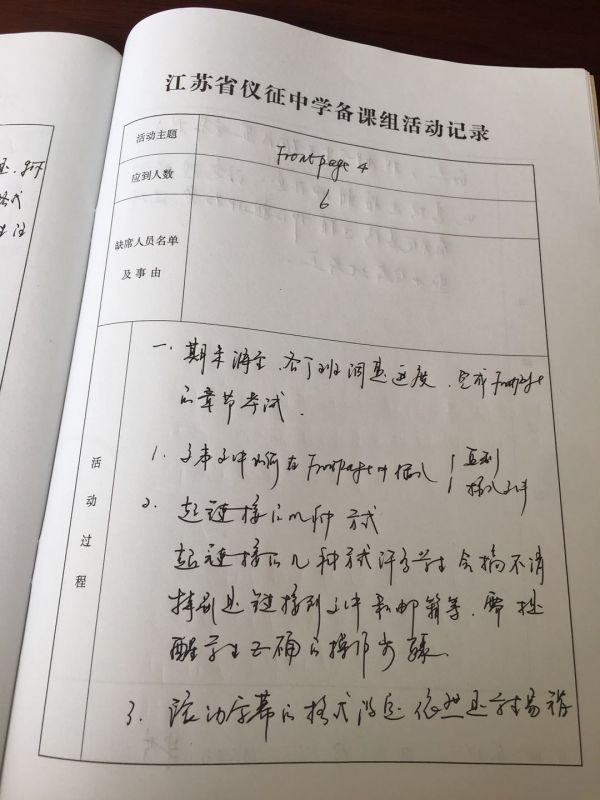 江苏省仪征中学备课组活动记录
活动主题
Frontpage 4
应到人数
6
缺席人员名单
及事由
活动过程
一. 期末将至, 各个班调整进度, 完成Frontpage
的章节考试.
1. 文本文件如何在Frontpage中插入 复制
插入文件
2. 超链接的几种方式
超链接的几种方式许多学生会搞不清
特别是链接到文件和邮箱等, 需提
醒学生正确的操作步骤.
3. 滚动字幕的格式设置依然是学生易错